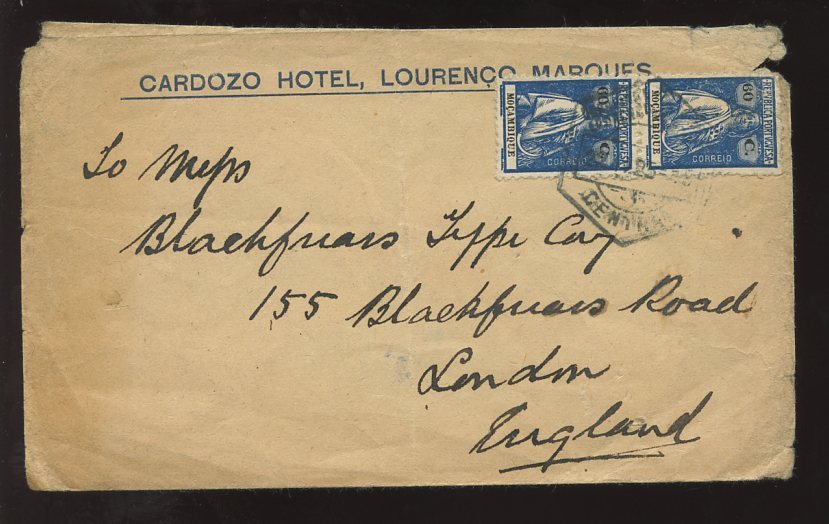 CARDOZO HOTEL, LOURENÇO MARQUES
REPUBLICA PORTUGUESA
60 C.
MOÇAMBIQUE
CORREIO
REPUBLICA PORTUGUESA
60 C.
MOÇAMBIQUE
CORREIO
To Mess
Blackfriars Type Coy
155 Blackfriars Road
London
England